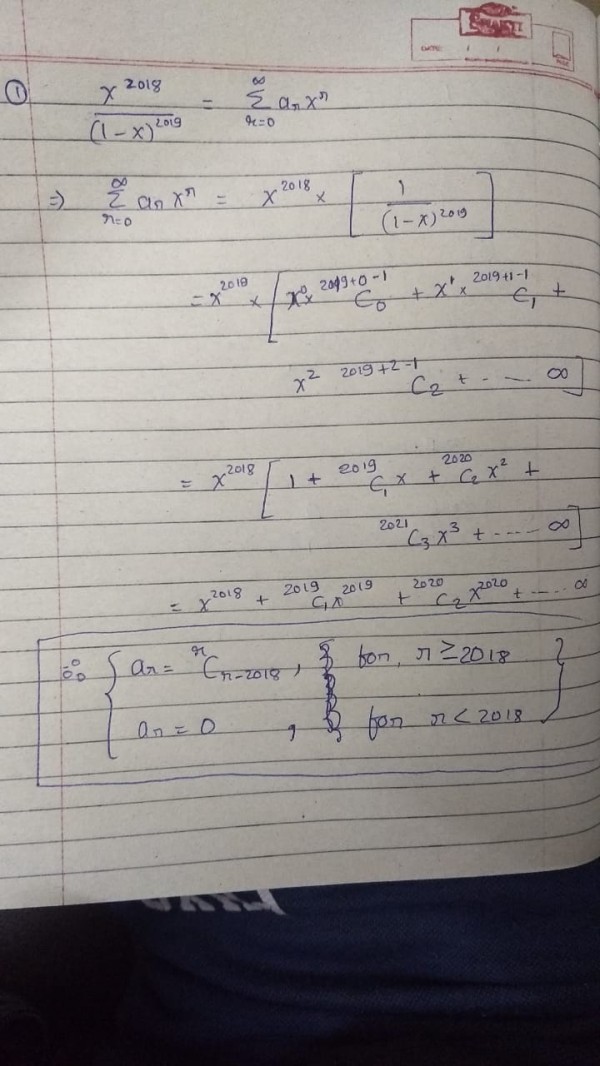 SHAKTI
DATE: / /
① x^2018 / (1-x)^2019 = ∞Σr=0 aᵣxʳ
⇒ ∞Σr=0 aᵣxʳ = x^2018 × [ 1 / (1-x)^2019 ]
= x^2018 × [ x^0 × ^2019+0-1 C₀ + x^1 × ^2019+1-1 C₁ +
x^2 ^2019+2-1 C₂ + ---- ∞ ]
= x^2018 [ 1 + ^2019 C₁ x + ^2020 C₂ x^2 +
^2021 C₃ x^3 + ---- ∞ ]
= x^2018 + ^2019 C₁ x^2019 + ^2020 C₂ x^2020 + ---- ∞
∴ { aᵣ = ʳCᵣ₋₂₀₁₈ , for, r ≥ 2018 }
{ aᵣ = 0 , for r < 2018 }